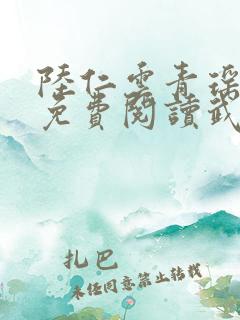 陸仁雲青瑤
免費閱讀武
扎巴
未经同意禁止转载